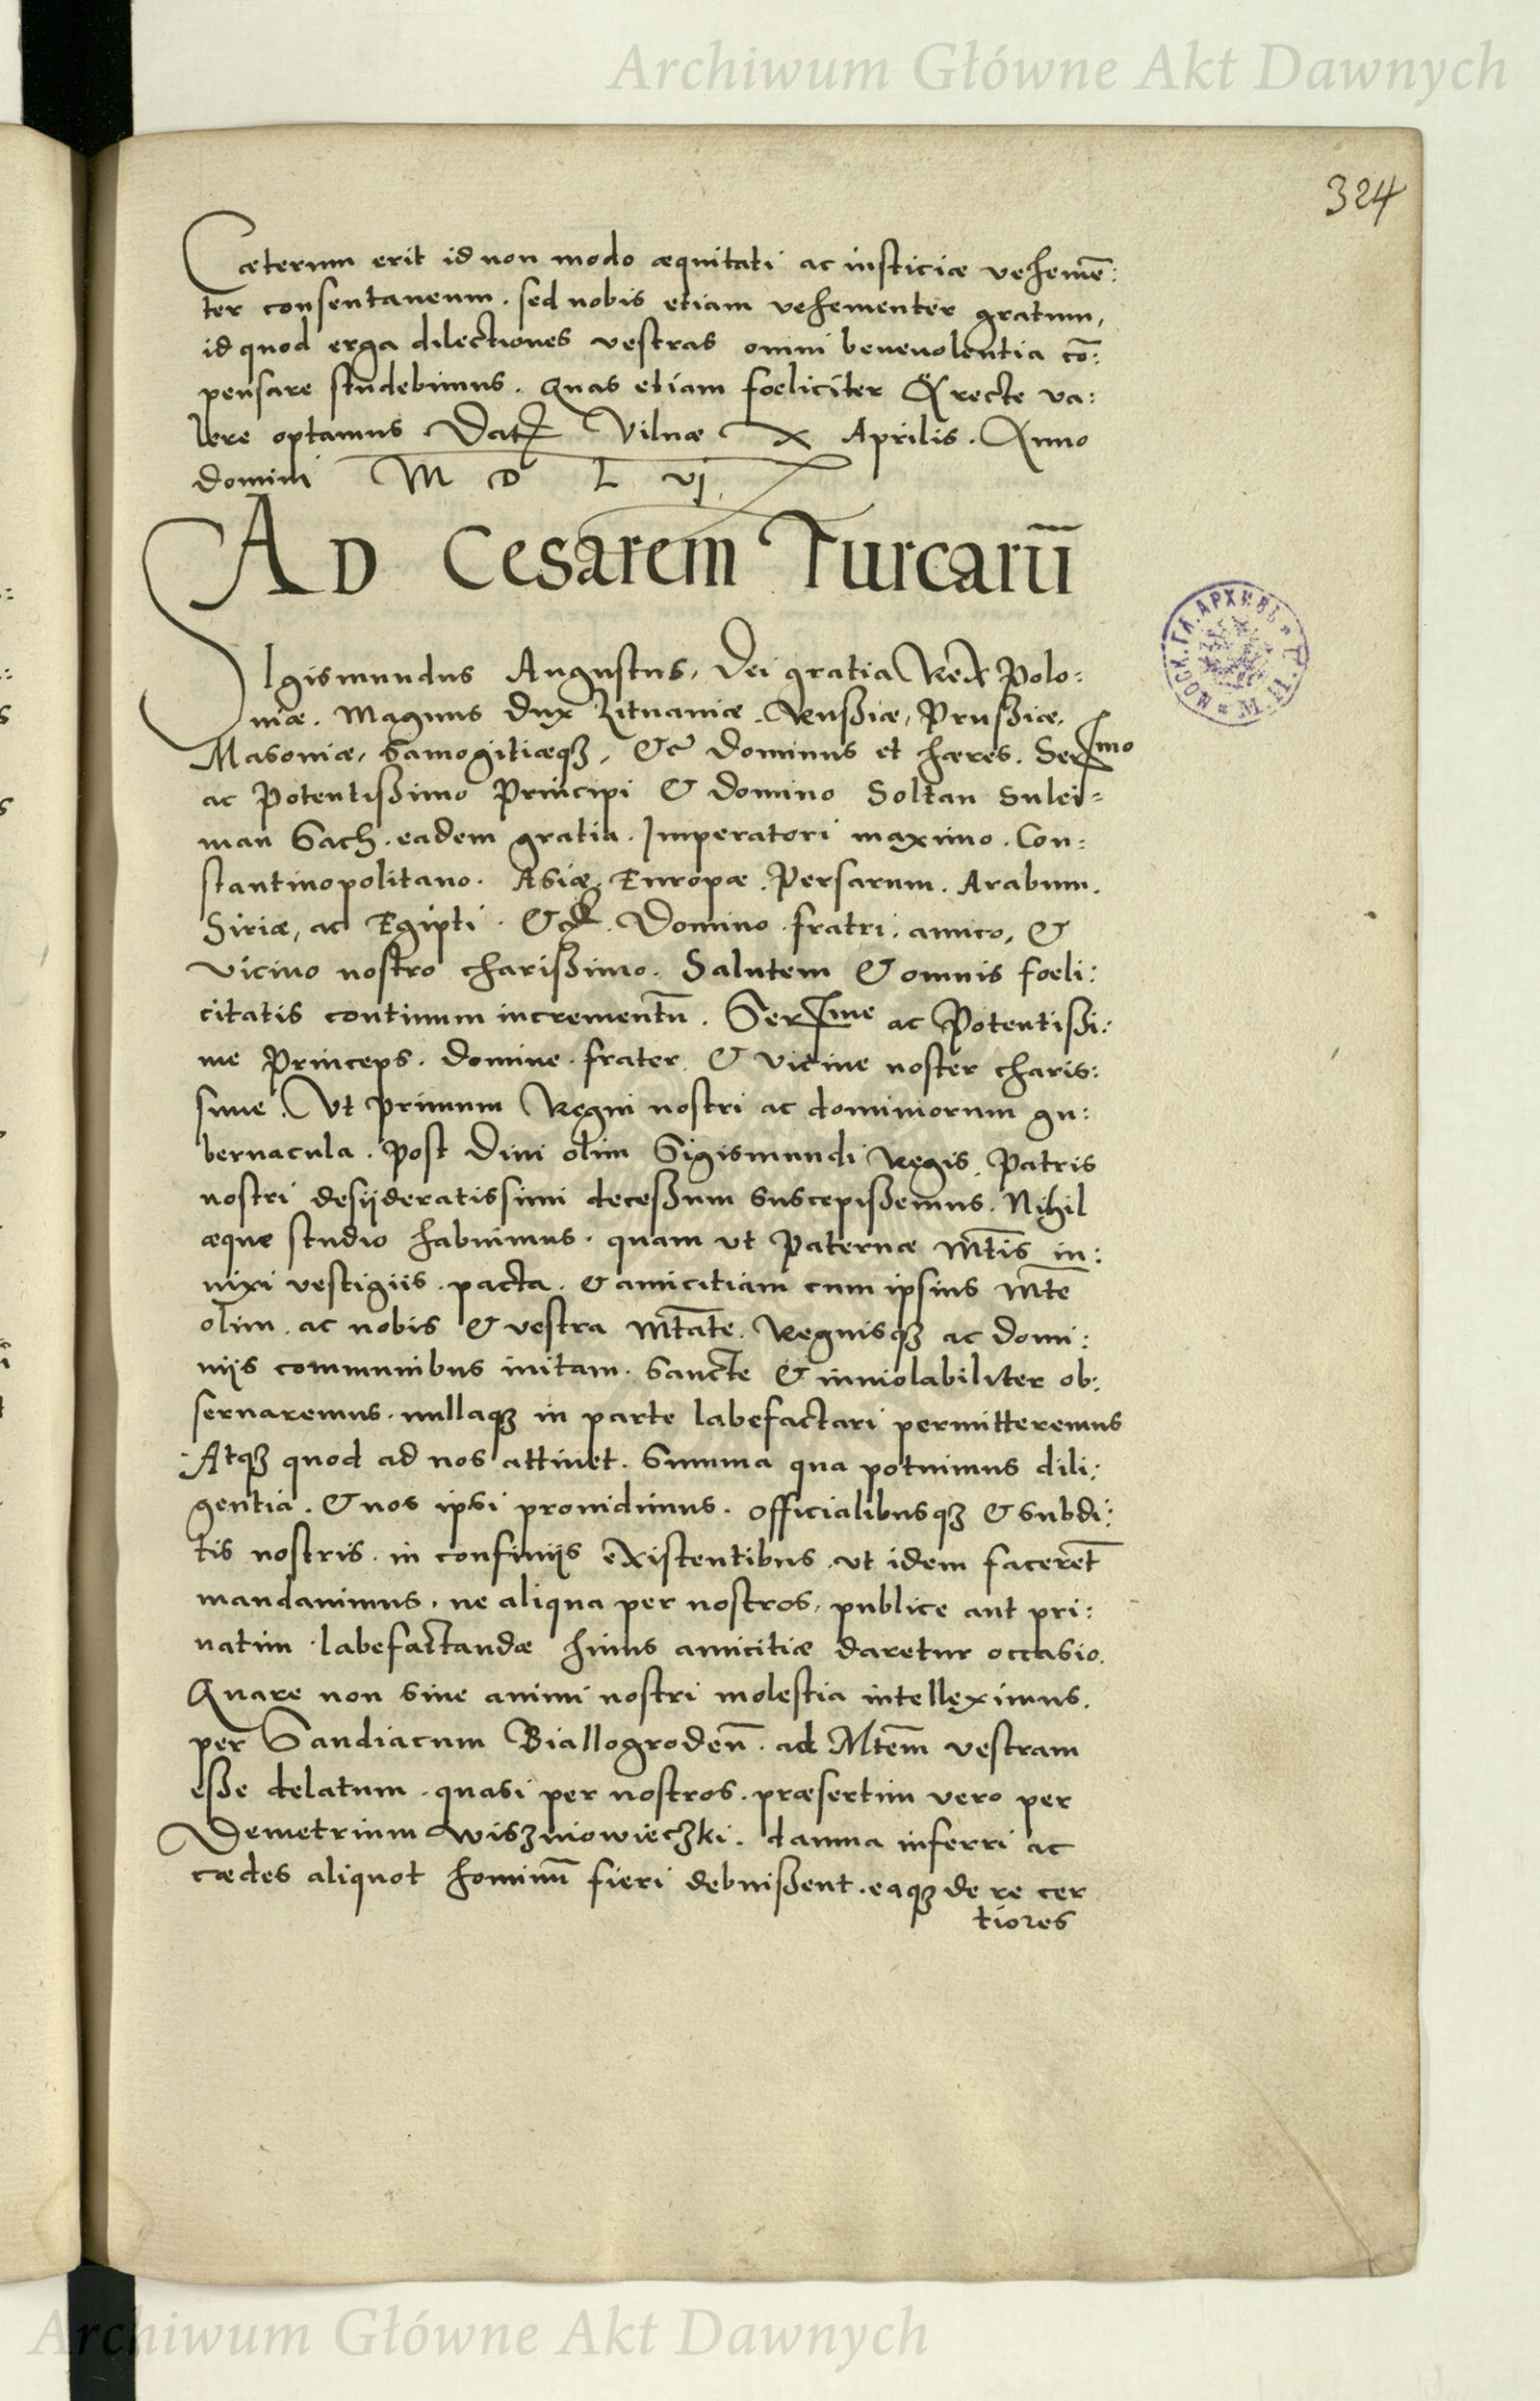 Archiwum Główne Akt Dawnych
324
Cæterum erit id non modo æquitati ac iusticiæ vehemē:
ter consentaneum. sed nobis etiam vehementer gratum,
id quod erga dilectiones vestras omni benevolentia cō:
pensare studebimus. Quas etiam foeliciter & recte va:
lere optamus Dat Vilnæ X Aprilis. Anno
domini M D L vj
AD Cesarem Turcarū
SIgismundus Augustus, Dei gratia Rex Polo:
niæ. Magnus Dux Lituaniæ. Russiæ, Prussiæ.
Masoviæ, Samogitiæq3, &c Dominus et hæres. Sermo
ac Potentissimo Principi & domino Soltan Sulei=
man Sach. eadem gratia. Imperatori maximo. Con:
stantinopolitano. Asiæ. Europæ. Persarum. Arabum.
Siriæ, ac Egipti. &c. Domino. fratri. amico, &
vicino nostro charissimo. Salutem & omnis foeli:
citatis continuum incrementū. Serme ac Potentissi:
me Princeps. domine. frater. & vicine noster charis:
sime. Ut primum Regni nostri ac dominiorum gu:
bernacula. post Divi olim Sigismundi Regis. Patris
nostri desijderatissimi decessum suscepissemus. Nihil
æque studio habuimus. quam ut Paternæ Mtīs in:
nixi vestigiis. pacta. & amicitiam cum ipsius Mte
olim. ac nobis & vestra Mtāte. Regnisq3 ac domi:
nijs communibus initam. sancte & inviolabiliter ob:
servaremus. nullaq3 in parte labefactari permitteremus
Atq3 quod ad nos attinet. Summa qua potuimus dili:
gentia. & nos ipsi providimus. officialibusq3 & subdi:
tis nostris. in confinijs existentibus. ut idem facerēt
mandavimus, ne aliqua per nostros, publice aut pri:
vatim. labefactandæ huius amicitiæ daretur occasio.
Quare non sine animi nostri molestia intelleximus.
per Sandiacum Biallogrodeñ. ad Mtēm vestram
esse delatum. quasi per nostros. præsertim vero per
Demetrium Wiszniowieczki. damna inferri ac
cædes aliquot hominū fieri debuissent. eaq3 de re cer
tiores
МОСК. ГЛ. АРХИВЪ
Archiwum Główne Akt Dawnych